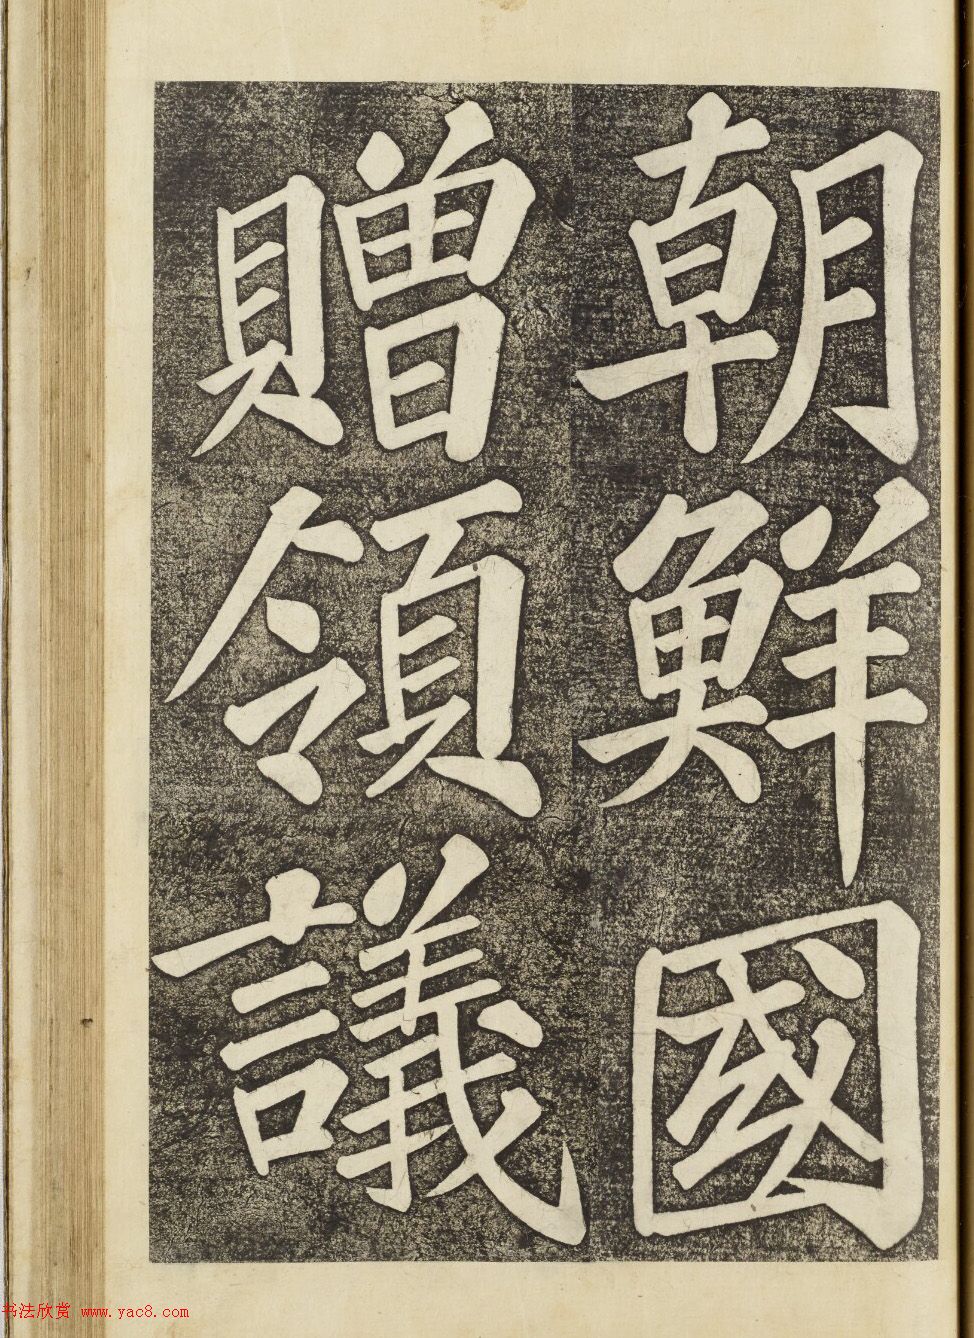 朝鮮國
贈領議
书法欣赏 www.yac8.com